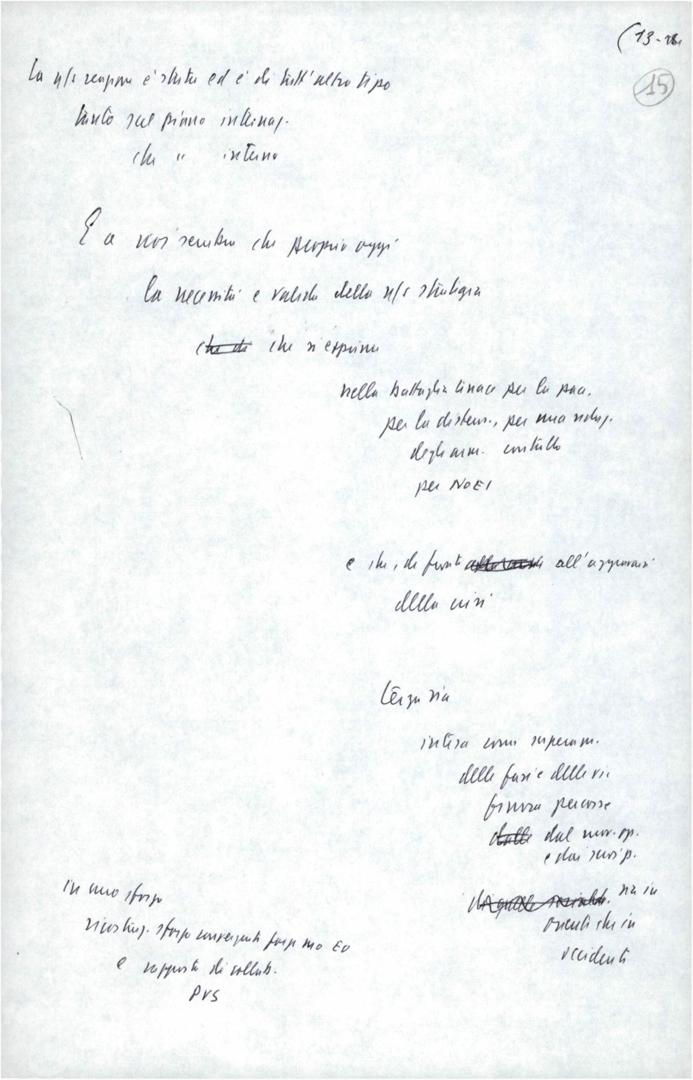 (13-
15
La n/s reazione è stata ed è di tutt'altro tipo
tanto sul piano internaz.
che " interno
E a noi sembra che proprio oggi
la necessità e validità della n/s strategia
che di che si esprime
nella battaglia tenace per la pace,
per la distens., per una riduz.
degli arm. controllo
per NOEI
e che, di fronte all'aggravarsi
della crisi
terza via
intesa come superam.
delle fasi e delle vie
finora percorse
dalle dal mov. op.
e dai
sia in
oriente che in
occidente
in uno sforzo
sforzo convergente forze mo EO
e rapporto di collab.
PVS